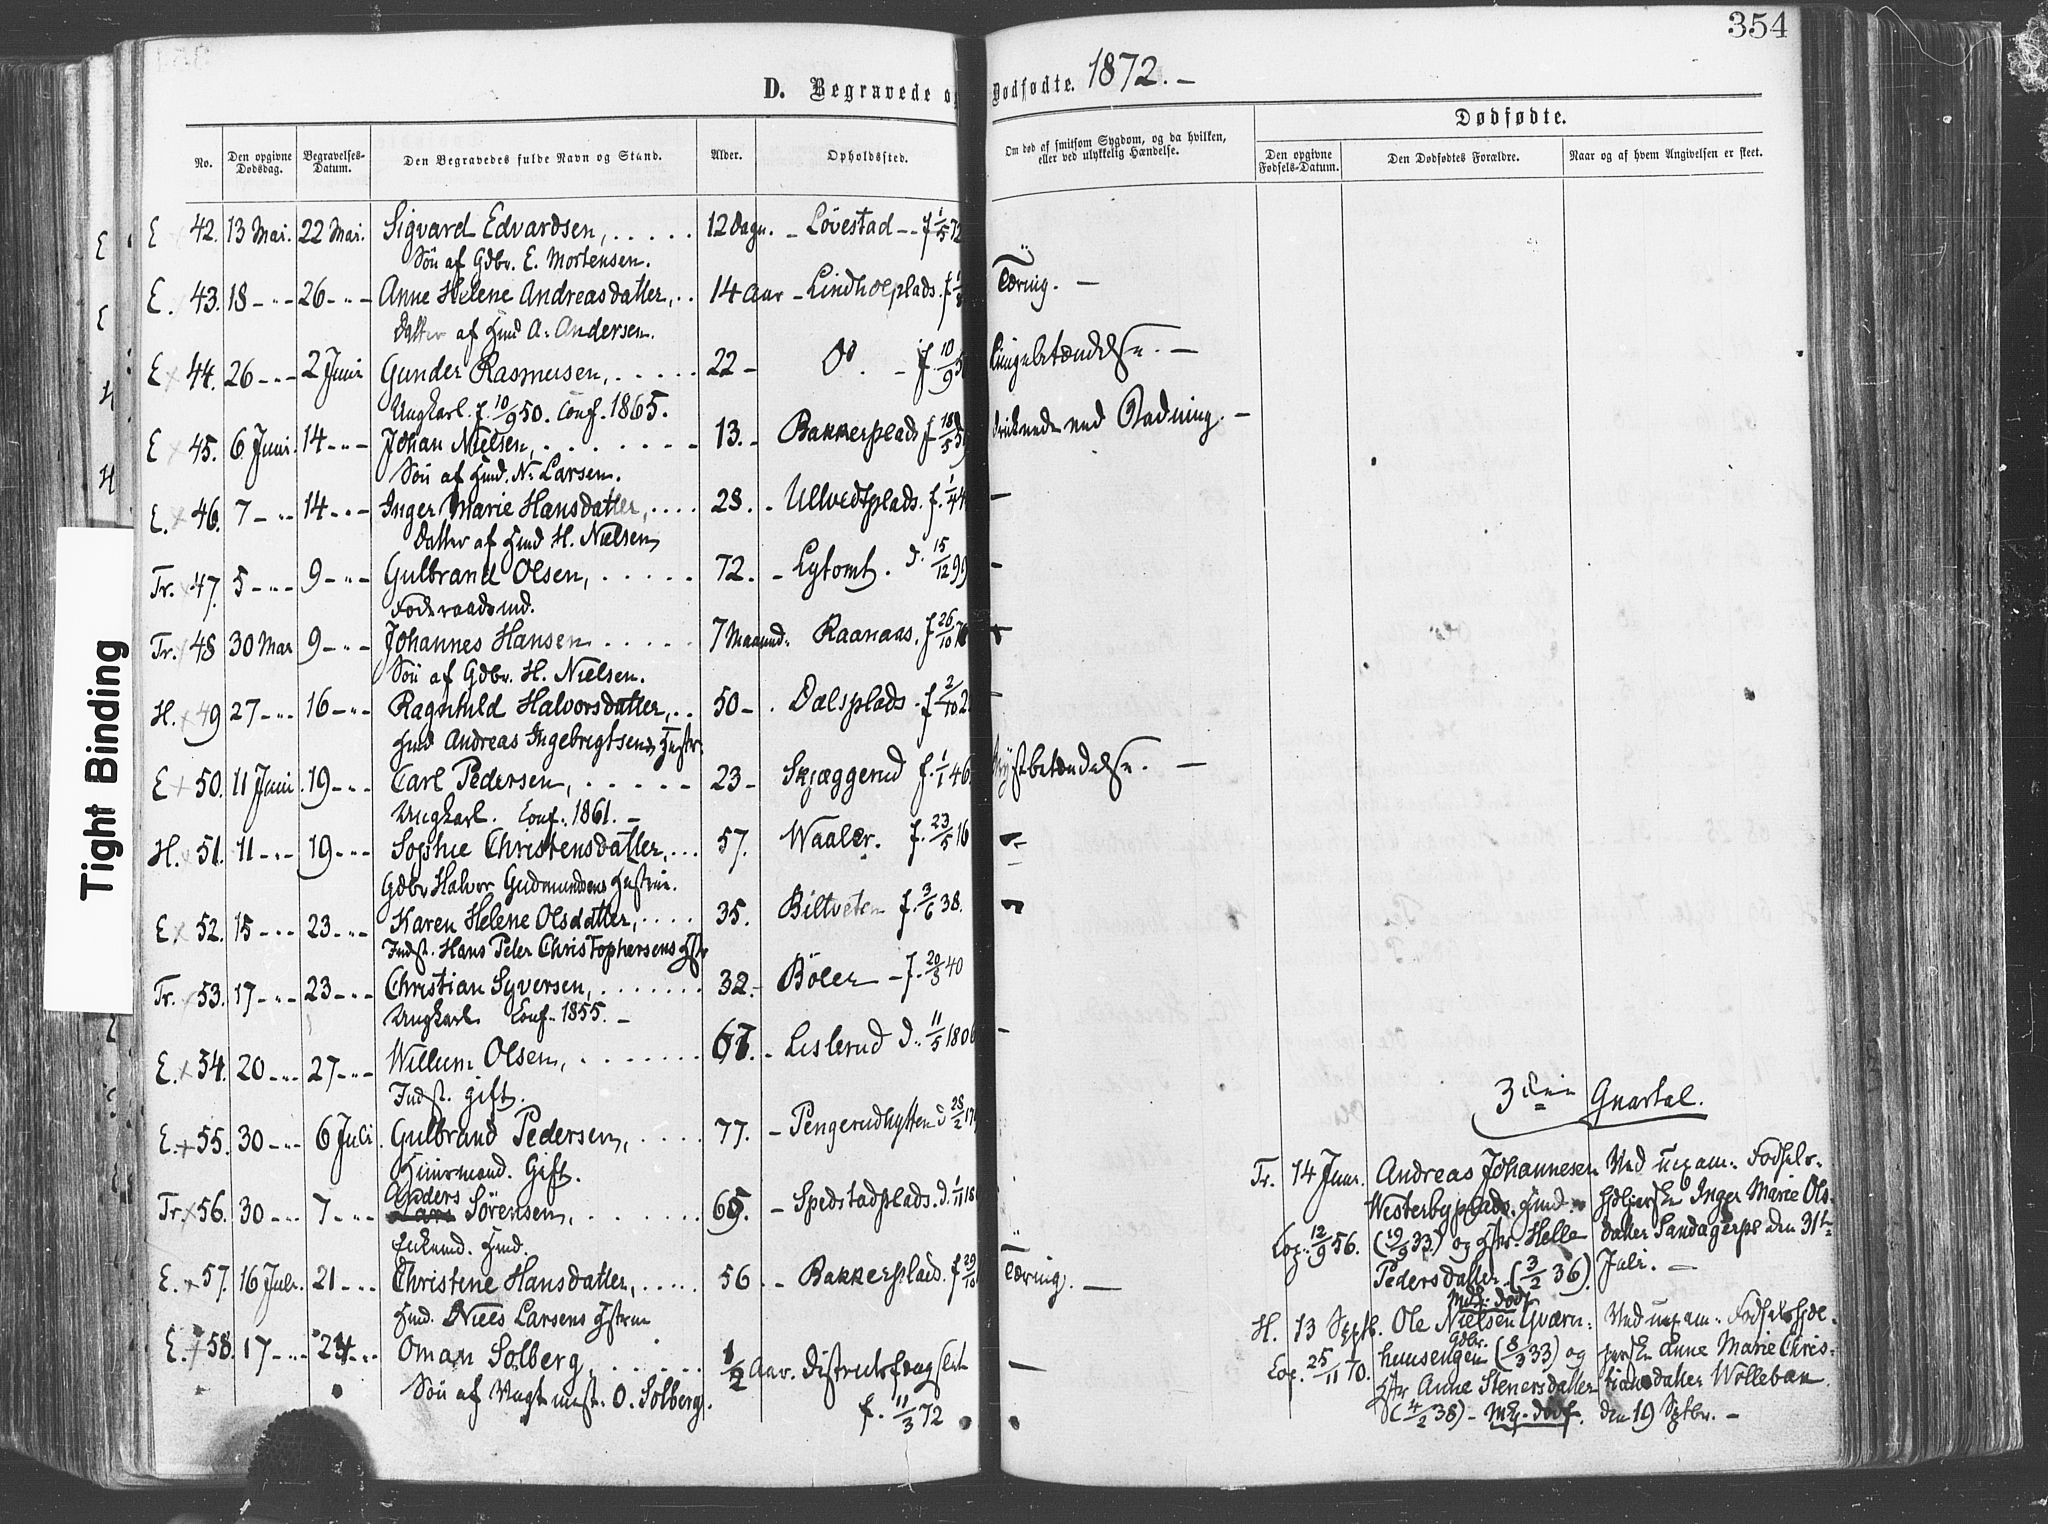 354
D. Begravede og Dødfødte. 1872. –
Dødfødte.
No. Den opgivne Dødsdag. Begravelses-Datum. Den Begravedes fulde Navn og Stand. Alder. Opholdssted. Om død af smitsom Sygdom, og da hvilken, eller ved ulykkelig Hændelse. Den opgivne Fødsels-Datum. Den Dødfødtes Forældre. Naar og af hvem Angivelsen er skeet.
E 42. 13 Mai. 22 Mai. Sigvard Edvardsen, 12 Dage. – Lövestad – f 1/5 72
Sön af Gdbr. E. Mortensen.
E. 43. 18 – " – 26 – " – Anne Helene Andreasdatter, 14 Aar – Lindholplads. f Tæring. –
Datter af Hmd A. Andersen.
E × 44. 26 – " – 2 Juni Gunder Rasmusen, 22 – Do. – f. 10/9 5 Lungebetændelse. –
Ungkarl. f. 10/9 50. Conf. 1865.
E × 45. 6 Juni. 14 – " – Johan Nielsen, 13. – Bakkerplads f 18/5 59 druknede ved Badning. –
Sön af Hmd. N. Larsen.
E. × 46. 7 – " – 14 – " – Inger Marie Hansdatter, 28. – Ullvedtplads. f. 1/1 44 –
Datter af Hmd H. Nielsen
Tr. × 47. 5 – " – 9 – " – Gulbrand Olsen, 72. – Lytomt. d. 15/12 99 –
Föderaadsmd.
Tr. × 48 30 Mai 9 – " – Johannes Hansen 7 Maaned. Raanaas. f 26/10 7
Sön af Gdbr. H. Nielsen.
H. × 49 27 – " – 16 – " – Ragnhild Halvorsdatter, 50 – . Dælsplads – f 2/10 2 –
Hmd Andreas Ingebrigtsens Hustr.
E × 50. 11 Juni. 19 – " – Carl Pedersen, 23 – Skjæggerud f. 1/1 46 Brystbetændelse. –
Ungkarl. Conf. 1861. –
H. × 51. 11 – " – 19 – " – Sophie Christensdatter, 57. Waaler. f. 23/5 16 –
Gdbr Halvor Gudmundsens Hustrue.
E × 52. 15 – " – 23 – " – Karen Helene Olsdatter, 35. Biltveten f. 3/6 38. "
Indst. Hans Peter Christophersens Hstr
Tr. 53. 17 – " – 23 – " – Christian Syversen, 32. – Böler – f. 20/3 40
Ungkarl. Conf. 1855. –
E. × 54. 20 – " – 27 – " – Willum Olsen, 67. – Lislerud d. 11/5 1806 –
Indst. gift.
3die Quartal.
E. × 55. 30 – " – 6 Juli. Gulbrand Pedersen, 77. – Pengerudhytten d 28/2 17
Huusmand. Gift.
Tr. × 56. 30 – " – 7 – " – Anders Sörensen, 65. – Spedstadplads. d. 1/11 18
Enkemd. Hmd.
E. × 57. 16 Juli. 21 – " – Christine Hansdatter, 56 – Bakkerplads. f 29/10 Tæring. –
Hmd. Niels Larsens Hstrue
E. × 58. 17 – " – 24 – " – Oman Solberg, 1/2 Aar. Districtsfængslet –
Sön af Vagtmst. O. Solberg. f. 11/3 72
Tr. 14 Juni. Andreas Johannesen Ved uexam. Födsels-
Westerbyplads. Hmd. hjelperske Inger Marie Ols-
Cop. 12/9 56. (19/9 33) og Hstr. Helle datter Sandagerpl den 31te
Pedersdatter. (3/2 36). Juli. –
H. 13 Septb. Ole Nielsen Qværn- Ved uexam. Födselshjel-
Gdbr.
Cop. 25/11 70. huusengen (8/3 33) og perske Anne Marie Chris-
Hstr Anne Stenersdatter tiansdatter Wolleban
(4/2 38) – den 19 Sptbr. –
Tight Binding